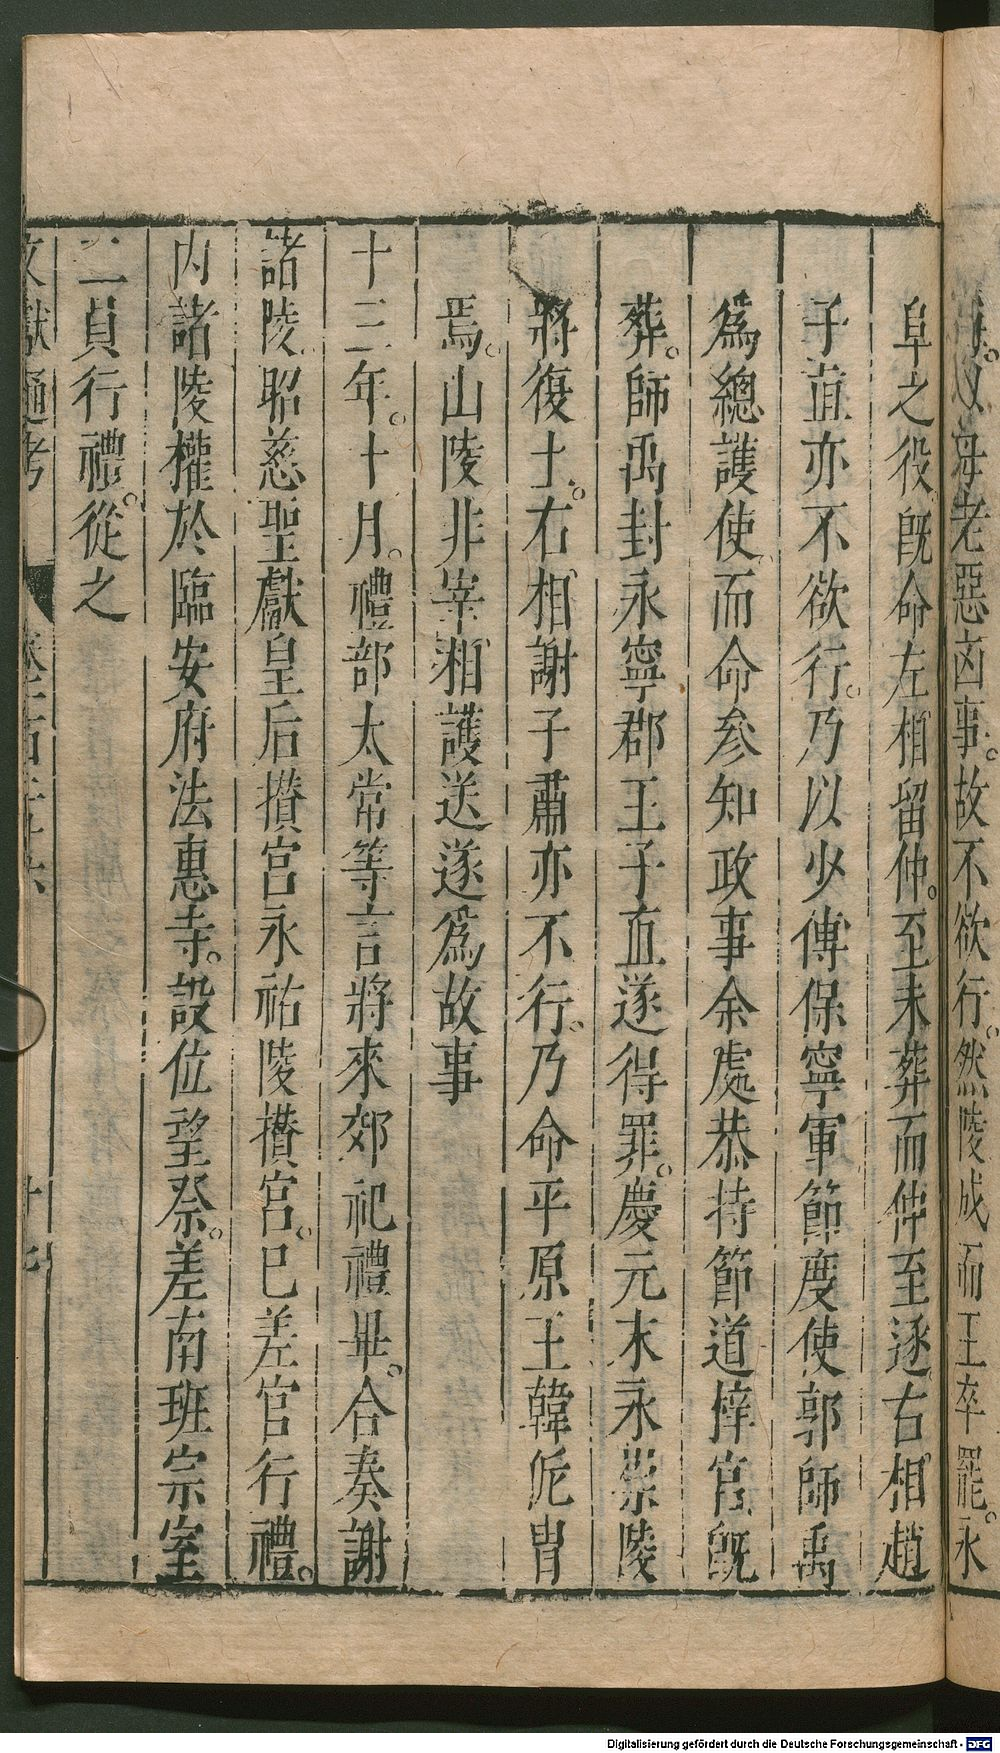 以母老惡凶事。故不欲行。然陵成而王卒罷。永
阜之役旣命左相留仲。至未葬而仲至逐右相趙
子直亦不欲行。乃以少傅保寧軍節度使郭師禹
爲總護使而命參知政事余處恭持節道梓宮旣
葬。師禹封永寧郡王子直遂得罪。慶元末永崇陵
將復土。右相謝子肅亦不行。乃命平原王韓侂冑
焉。山陵非宰相護送遂爲故事
十三年。十月。禮部太常等言將來郊祀禮畢。合奏謝
諸陵。昭慈聖獻皇后攢宮永祐陵攢宮。已差官行禮。
內諸陵權於臨安府法惠寺。設位望祭。差南班宗室
二員行禮。從之
文獻通考 卷 十七
Digitalisierung gefördert durch die Deutsche Forschungsgemeinschaft - DFG